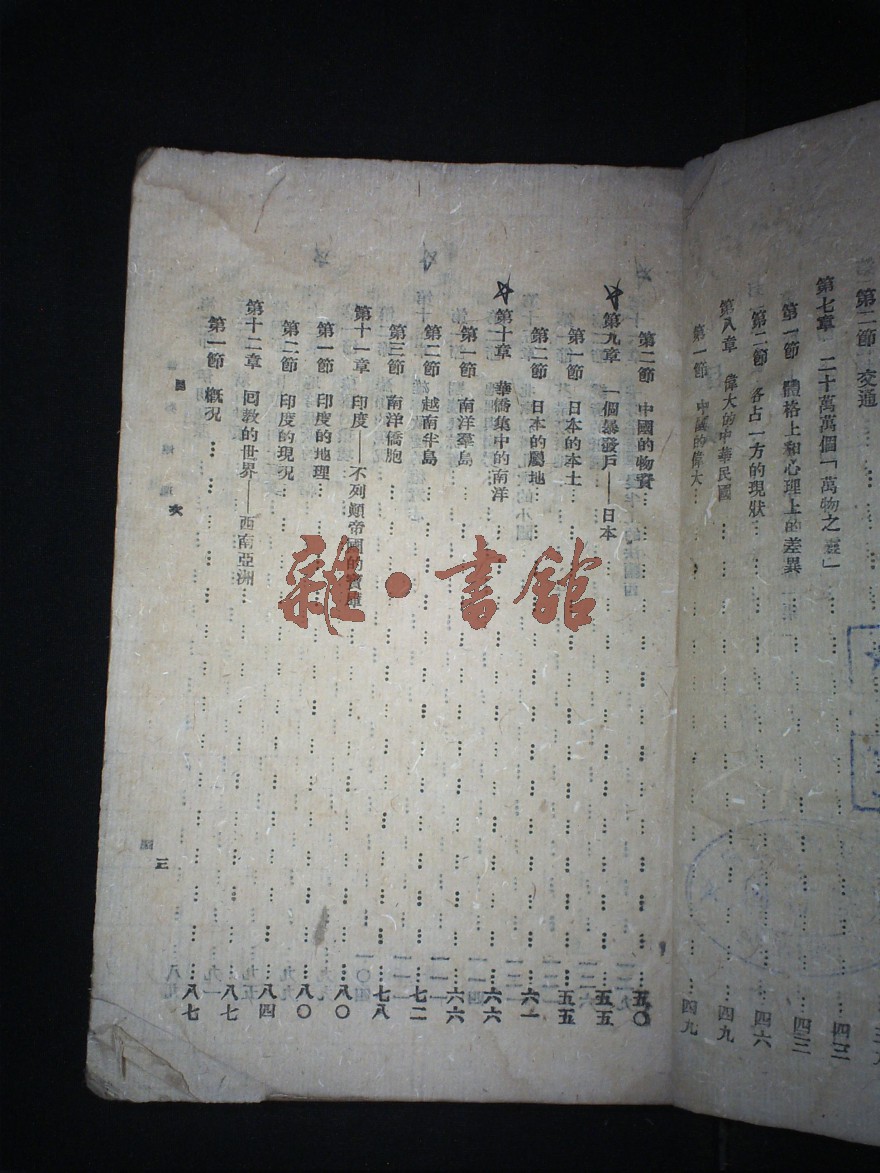 第二節 交通
第七章 二十萬萬個「萬物之靈」……四三
第一節 體格上和心理上的差異……四三
第二節 各占一方的現狀……四六
第八章 偉大的中華民國……四九
第一節 中國的偉大……四九
第二節 中國的物資……五〇
第九章 一個暴發戶——日本……五五
第一節 日本的本土……五五
第二節 日本的屬地……六一
第十章 華僑集中的南洋……六六
第一節 南洋羣島……六六
第二節 越南半島……七二
第三節 南洋僑胞……七八
第十一章 印度——不列顛帝國的寶庫……八〇
第一節 印度的地理……八〇
第二節 印度的現況……八四
第十二章 回教的世界——西南亞洲……八七
第一節 概況……八七
目次
三
雜·書館